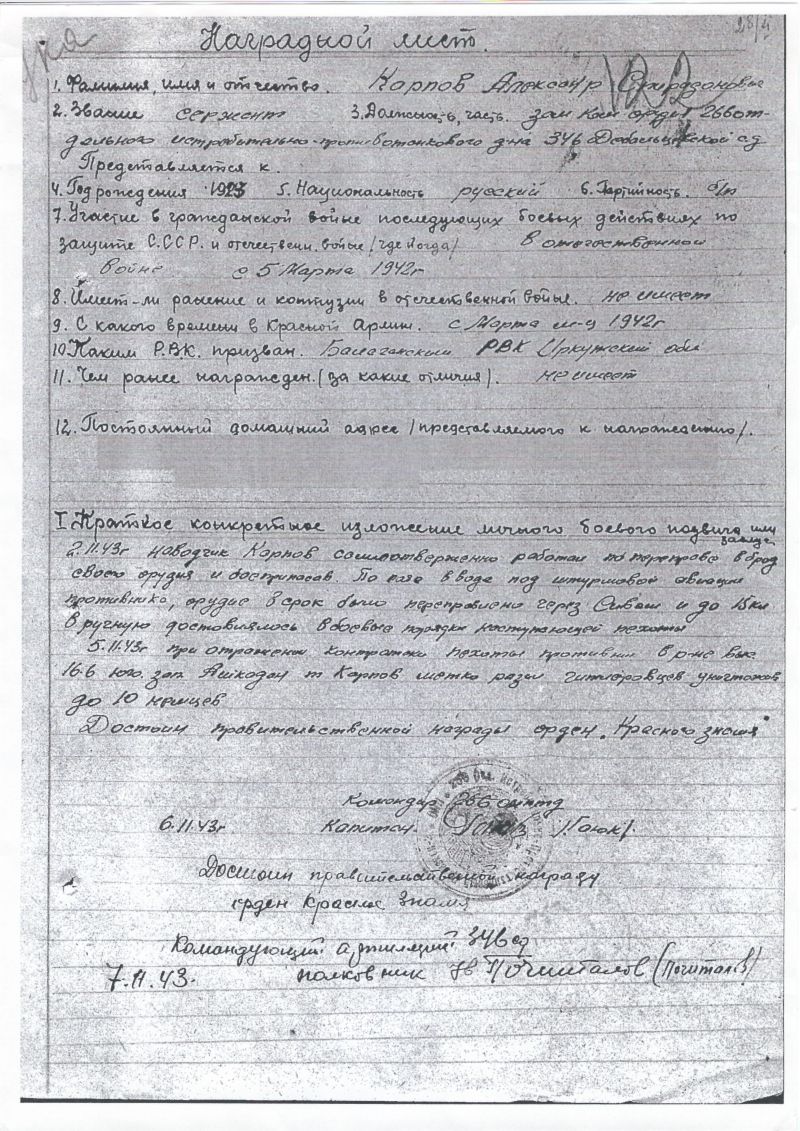 28/4
Наградной лист.
1. Фамилия, имя и отчество. Карпов Александр Спиридонович
2. Звание сержант 3. Должность, часть. зам ком орудия 266 от-
дельного истребительно-противотанкового д-на 346 Дебальцевской сд
Представляется к.
4. Год рождения 1923 5. Национальность русский 6. Партийность. б/п
7. Участие в гражданской войне последующих боевых действиях по
защите С.С.С.Р. и отечествен. войне /где когда/ в отечественной
войне с 5 Марта 1942г
8. Имеет-ли ранение и контузии в отечественной войне. не имеет
9. С какого времени в Красной Армии. с Марта м-ца 1942г
10. Каким Р.В.К. призван. Балаганским РВК Иркутской обл
11. Чем ранее награжден. (за какие отличия). не имеет
12. Постоянный домашний адрес /представляемого к награждению/.
I. Краткое конкретное изложение личного боевого подвига или
заслуг
2.11.43г наводчик Карпов самоотверженно работал по переправе в брод
своего орудия и боеприпасов. По пояс в воде под штурмовой авиации
противника, орудие в срок было переправлено через Сиваш и до 15км
в ручную доставлялось в боевые порядки наступающей пехоты
5.11.43г при отражении контратаки пехоты противник в р-не выс.
16.6 юго. зап Ашкадан т Карпов метко разил гитлеровцев уничтожив
до 10 немцев
Достоин правительственной награды орден „Красного знамя"
Командир 266 оиптд
6.11.43г Капитан /Гаюк/.
Достоин правительственной награду
орден Красное Знамя
Командующий артилерий 346 сд
7.11.43. полковник Почиталов (Почиталов)